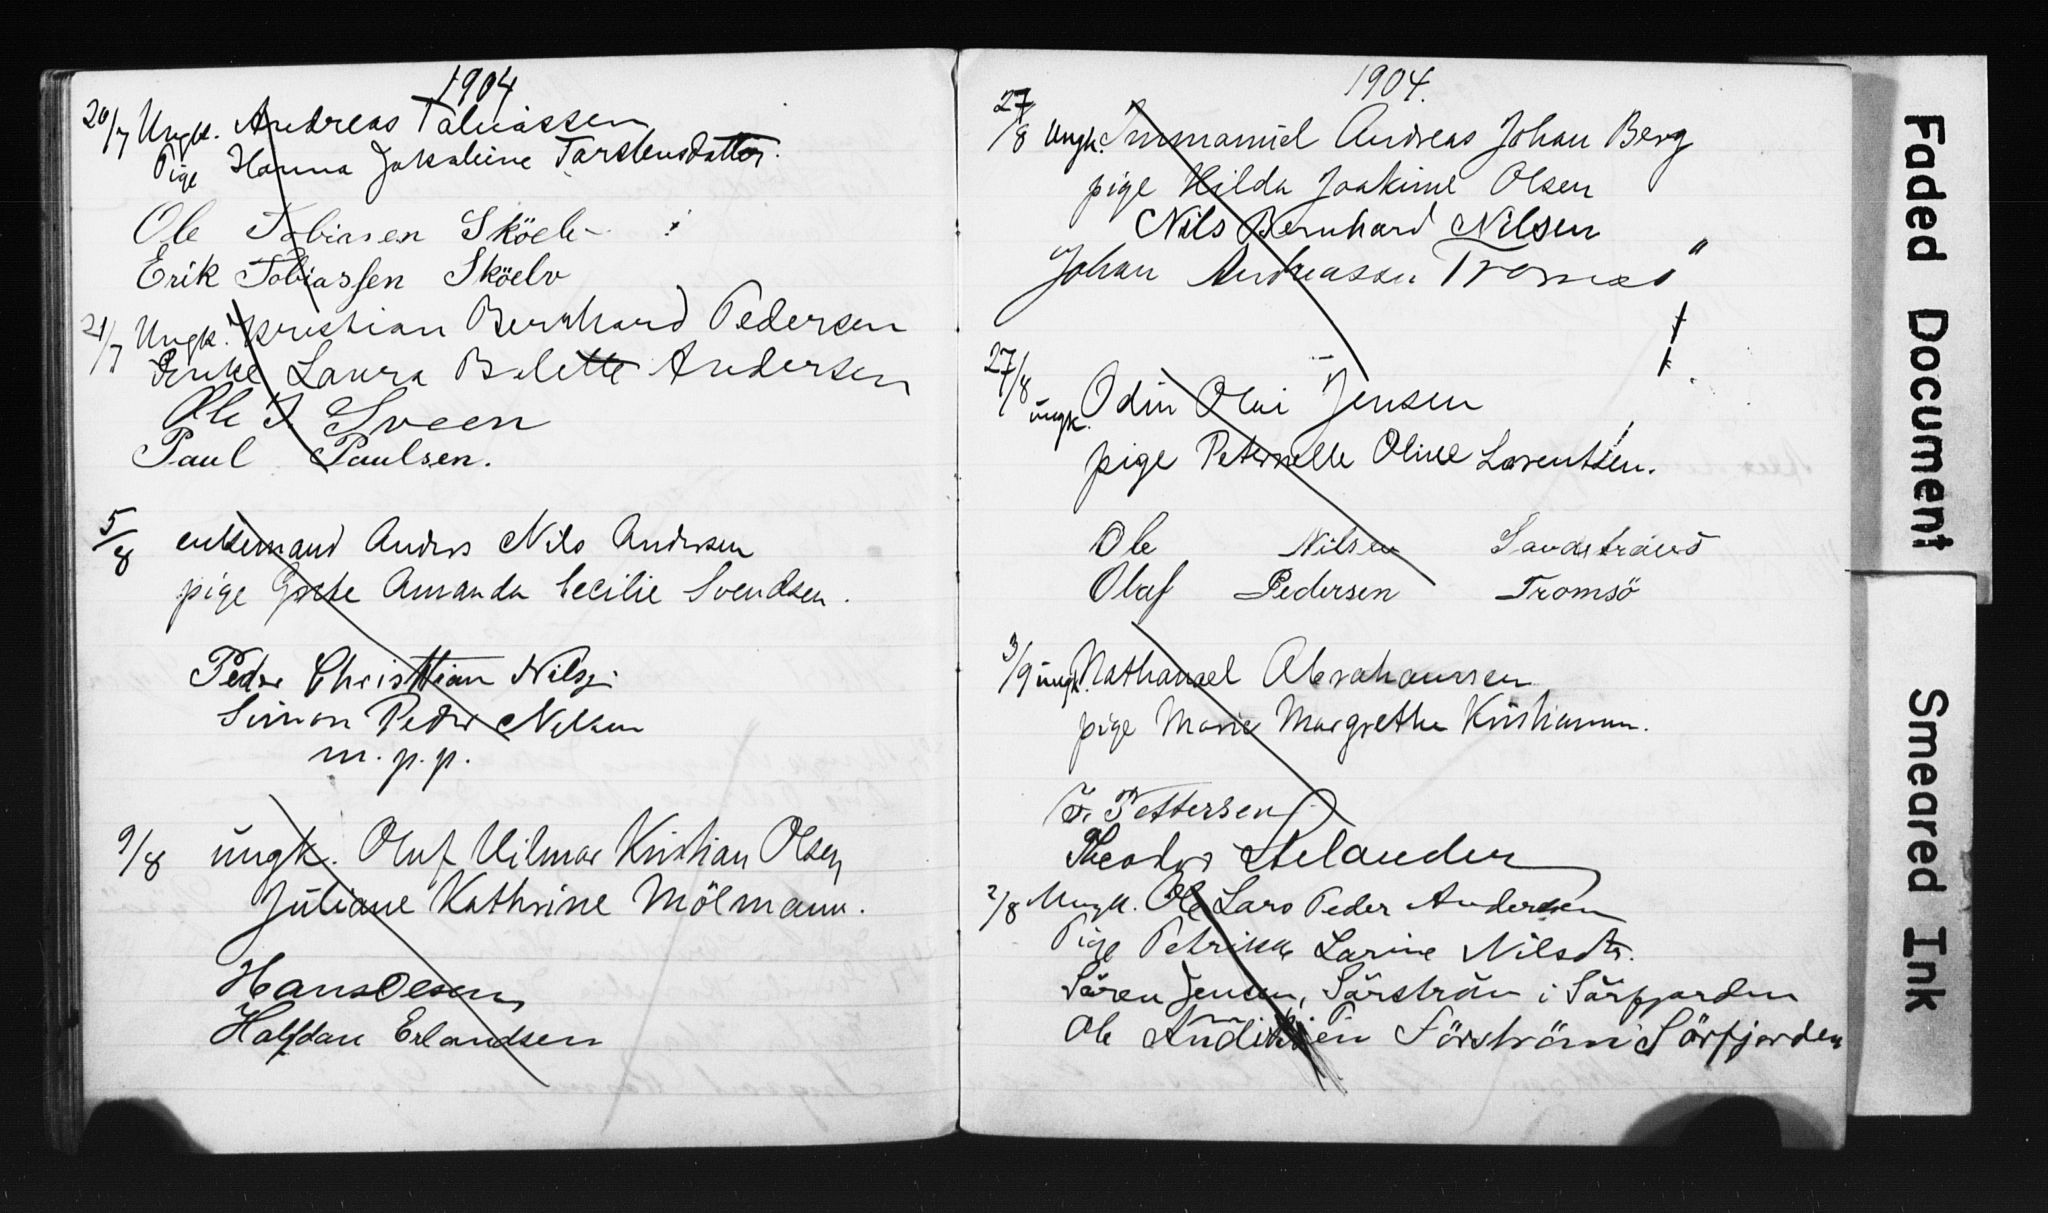 1904
20/7 Ungk. Andreas Tobiassen
Pige Hanna Jakobine Torstensdatter.
Ole Tobiasen Sköelv
Erik Tobiassen Sköelv
21/7 Ungk. Kristian Bernhard Pedersen
Enke Laura Bolette Andersen
Ole J Sveen
Paul Paulsen.
5/8 enkemand Anders Nils Andersen
pige Grete Amanda Cecilie Svendsen.
Peder Christian Nilsen
Simon Peder Nilsen
m.p.p.
9/8 ungk. Oluf Vilmar Kristian Olsen
Juliane Kathrine Mölmann.
Hans Olsen
Halfdan Erlandsen
1904.
27/8 Ungk. Immanuel Andreas Johan Berg
pige Hilda Joakime Olsen
Nils Bernhard Nilsen
Johan Andreassen Tromsö
27/8 ungk. Odin Olai Jensen
pige Peternelle Oline Lorentsen.
Ole Nilsen
Olaf Pedersen Tromsö
3/9 ungk. Nathanael Abrahamsen
pige Marie Margrethe Kristiansen.
Pettersen
Theodor Helander
2/8 Ungk. Ole Lars Peder Andersen
Pige Petrikke Larine Nilsdtr.
Sören Jensen, Sörström i Sörfjorden
Ole Sörström i Sörfjorden
Faded Document
Smeared Ink